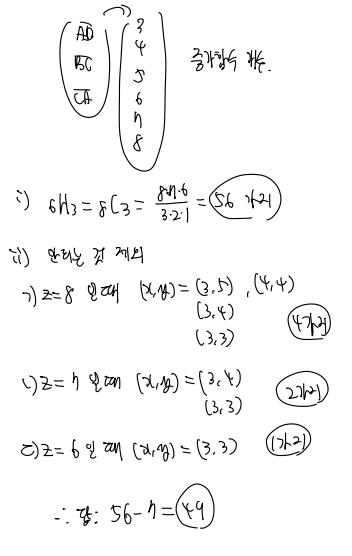 AB 3
BC 4
CA 5
6
7
8
증가함수 개수.
i) 6H3 = 8C3 = 8·7·6 / 3·2·1 = 56 가지
ii) 안되는 것 제외
ㄱ) z=8 일 때 (x,y) = (3,5), (4,4)
(3,4)
(3,3) 4가지
ㄴ) z=7 일 때 (x,y) = (3,4)
(3,3) 2가지
ㄷ) z=6 일 때 (x,y) = (3,3) 1가지
∴ 답: 56-7 = 49